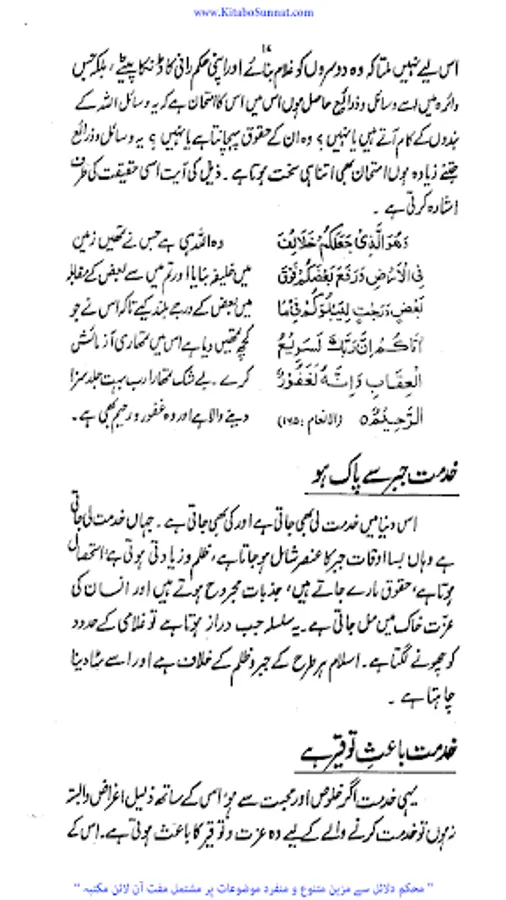 www.KitaboSunnat.com
۱۷
اس لیے نہیں ملتا کہ وہ دوسروں کو غلام بنائے اور اپنی حکم رانی کا ڈنکا پیٹے، بلکہ جس
دائرہ میں اسے وسائل و ذرائع حاصل ہوں اس میں اس کا امتحان ہے کہ یہ وسائل اللہ کے
بندوں کے کام آتے ہیں یا نہیں؟ وہ ان کے حقوق پہچانتا ہے یا نہیں؟ یہ وسائل و ذرائع
جتنے زیادہ ہوں امتحان بھی اتنا ہی سخت ہوتا ہے۔ ذیل کی آیت اسی حقیقت کی طرف
اشارہ کرتی ہے۔
وَهُوَ الَّذِیْ جَعَلَکُمْ خَلَائِفَ وہ اللہ ہی ہے جس نے تمھیں زمین
فِی الْاَرْضِ وَرَفَعَ بَعْضَکُمْ فَوْقَ میں خلیفہ بنایا اور تم میں سے بعض کے مقابلہ
بَعْضٍ دَرَجٰتٍ لِّیَبْلُوَکُمْ فِیْ مَا میں بعض کے درجے بلند کیے تاکہ اس نے جو
اٰتَاکُمْ اِنَّ رَبَّكَ لَسَرِیْعُ کچھ تمھیں دیا ہے اس میں تمھاری آزمائش
الْعِقَابِ وَ اِنَّهٗ لَغَفُوْرٌ کرے۔ بے شک تمھارا رب بہت جلد سزا
الرَّحِیْمٌ۝ (الانعام: ۱۶۵) دینے والا ہے اور وہ غفور و رحیم بھی ہے۔
خدمت جبر سے پاک ہو
اس دنیا میں خدمت لی بھی جاتی ہے اور کی بھی جاتی ہے۔ جہاں خدمت لی جاتی
ہے وہاں بسا اوقات جبر کا عنصر شامل ہو جاتا ہے، ظلم و زیادتی ہوتی ہے، استحصال
ہوتا ہے، حقوق مارے جاتے ہیں، جذبات مجروح ہوتے ہیں اور انسان کی
عزت خاک میں مل جاتی ہے۔ یہ سلسلہ جب دراز ہوتا ہے تو غلامی کے حدود
کو چھونے لگتا ہے۔ اسلام ہر طرح کے جبر و ظلم کے خلاف ہے اور اسے مٹا دینا
چاہتا ہے۔
خدمت باعثِ توقیر ہے
یہی خدمت اگر خلوص اور محبت سے ہو، اس کے ساتھ ذلیل اغراض وابستہ
نہ ہوں تو خدمت کرنے والے کے لیے وہ عزت و توقیر کا باعث ہوتی ہے۔ اس کے
" محکم دلائل سے مزین متنوع و منفرد موضوعات پر مشتمل مفت آن لائن مکتبہ "